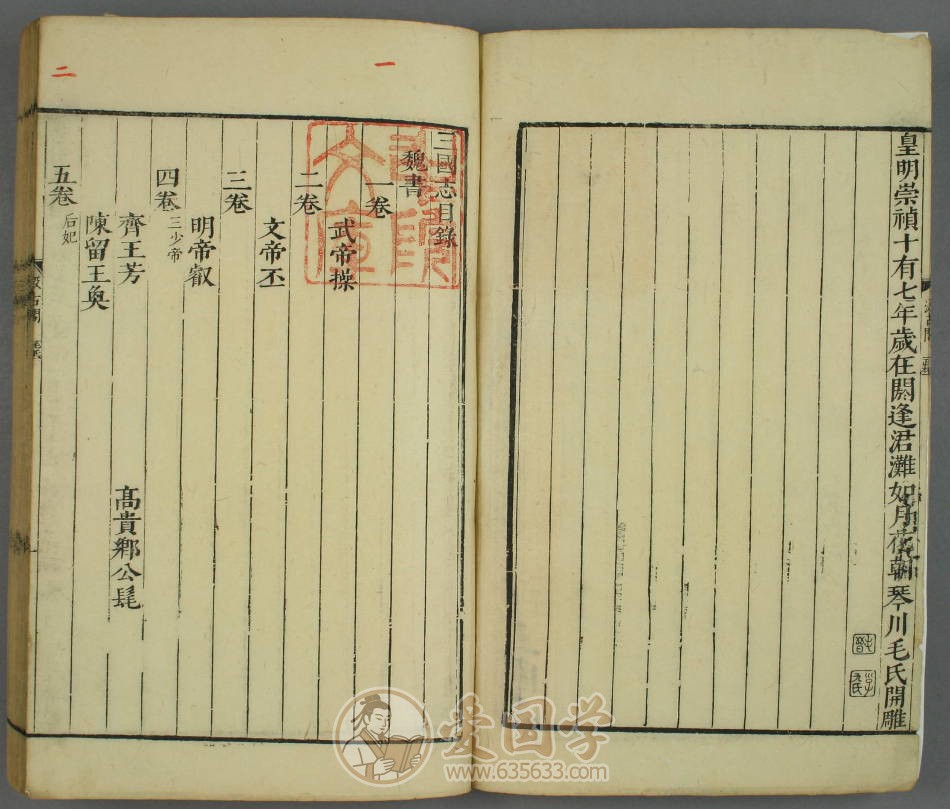 皇明崇禎十有七年歲在閼逢涒灘如月花朝琴川毛氏開雕
毛晉
汲古閣
一
三國志目錄
魏書
一卷
武帝操
二卷
文帝丕
三卷
明帝叡
四卷
三少帝
齊王芳 高貴鄉公髦
陳留王奐
五卷
后妃
二
汲古閣 毛氏
文庫
爱国学
www.635633.com